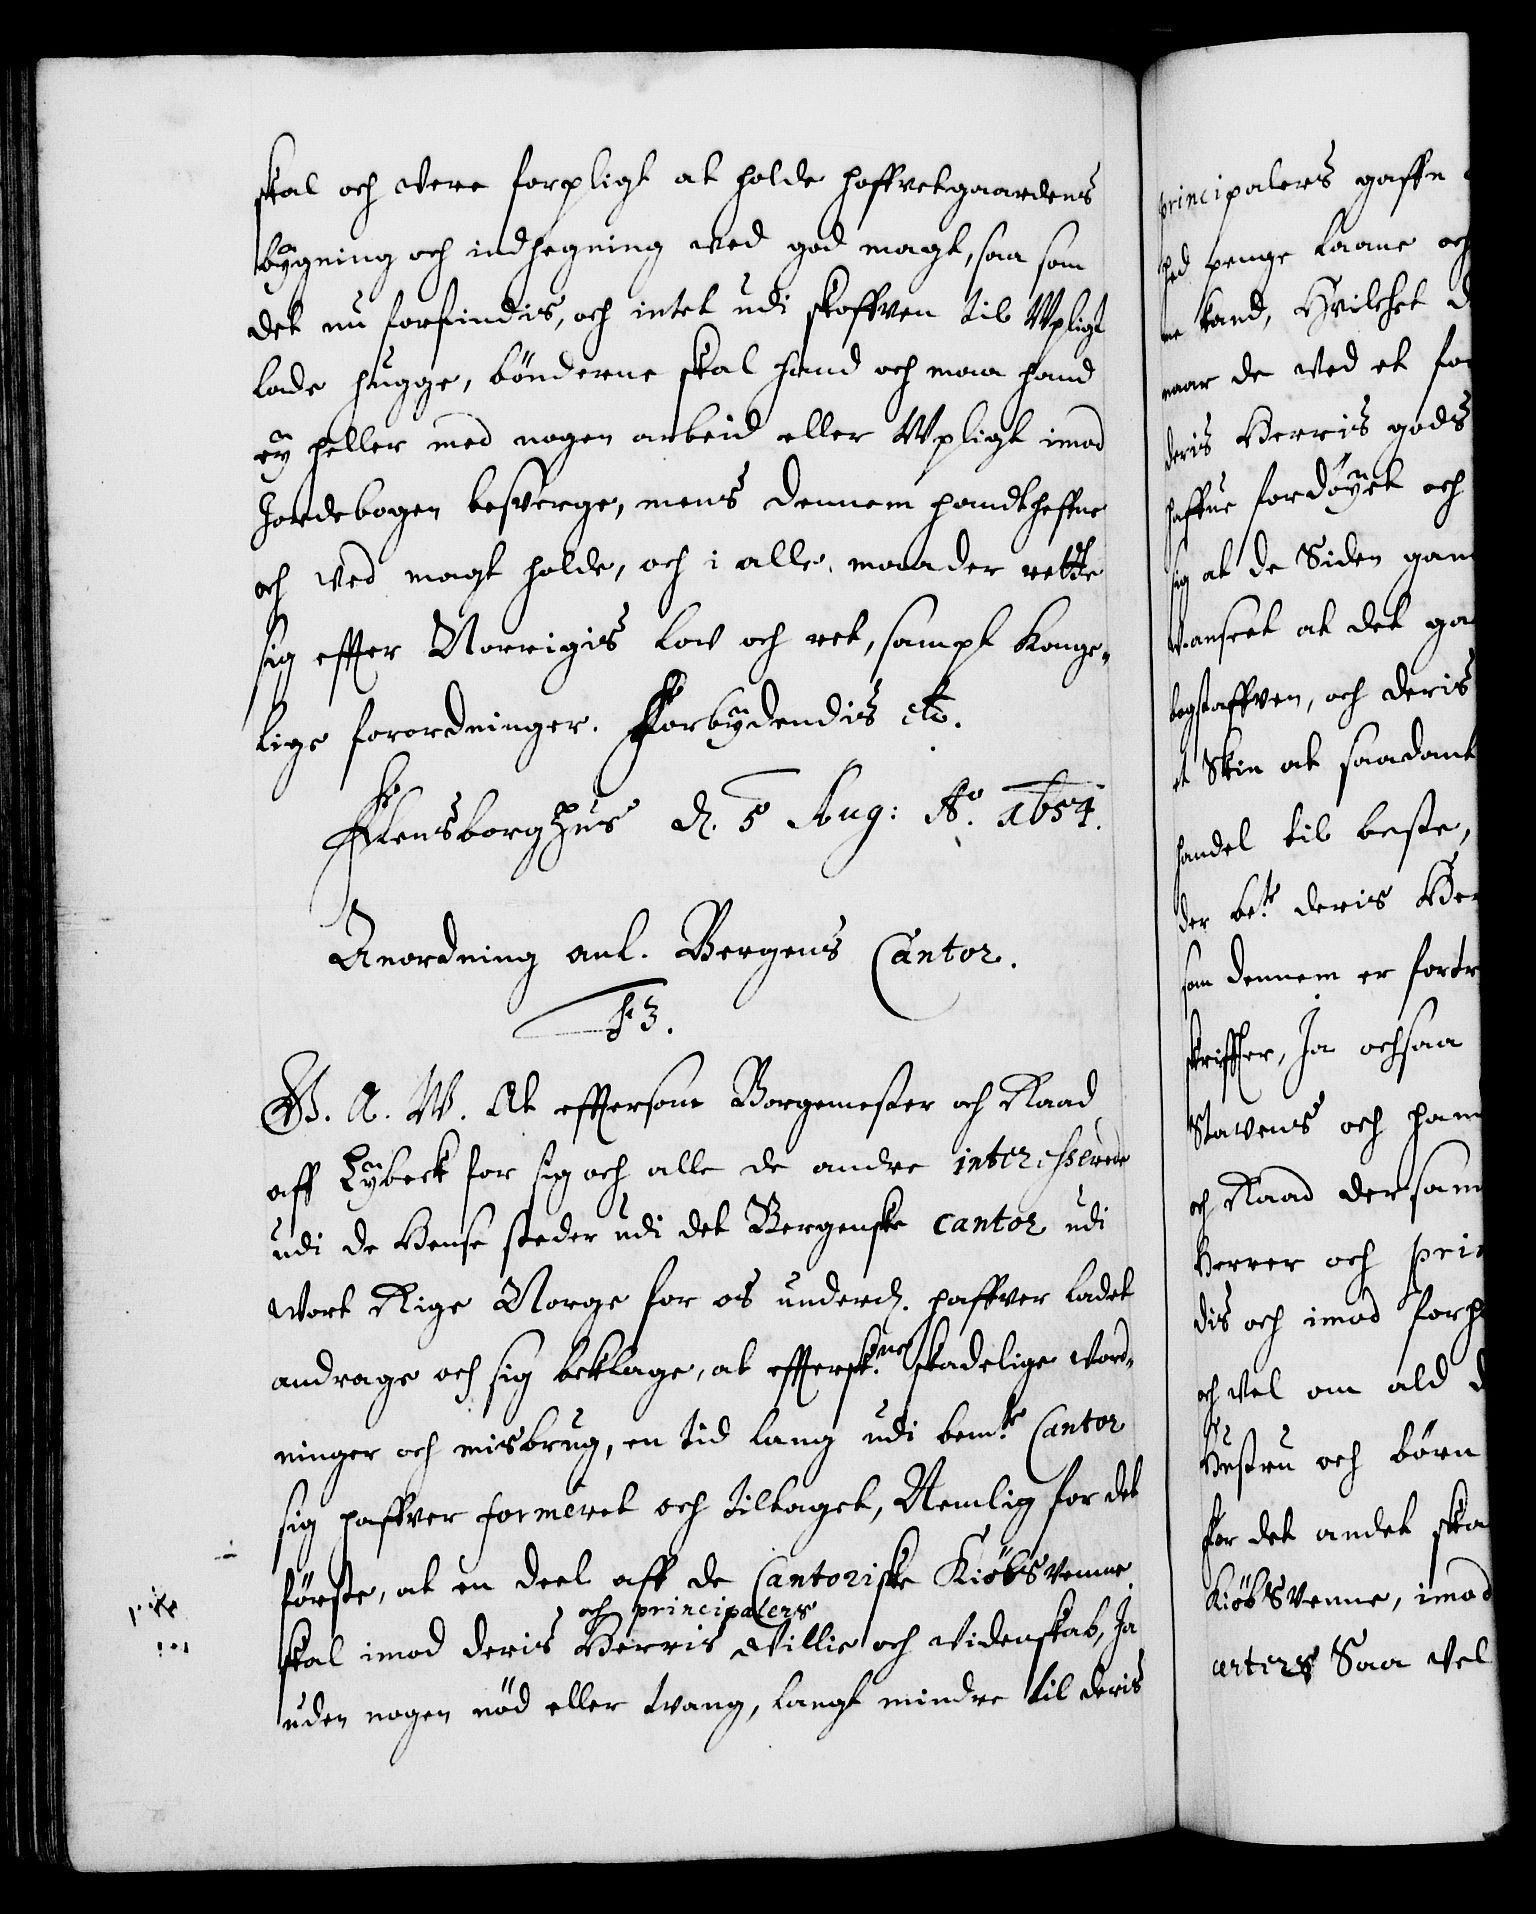 skal och vere forpligt at holde hoffvetgaardens
bÿgning och indhegning ved god magt, saa som
det nu forfindis, och intet udi skoffven til Vpligt
lade hugge, bönderne skal hand och maa hand
eÿ heller med nogen arbeid eller Vpligt imod
Jordebogen besverge, mens dennem handtheffve
och ved magt holde, och i alle maader rette
sig effter Norrigis low och ret, sampt Konge-
lige forordninger. Forbÿdendis etc.
Flensborghus d. 5 Aug: Ao. 1654.
Anordning anl. Bergens Cantor.
F 3.
G. A. W. At effersom Borgemester och Raad
aff Lÿbeck for sig och alle de andre interesserede
udi de Hense steder udi det Bergenske Cantor udi
vort Rige Norge for os underd. haffver ladet
andrage och sig beklage, at effterskne. skadelige Vord-
ninger och misbrug, en tid lang udi bemte. Cantor
sig haffver formeret och tiltaget, Nemlig for det
förste, at en deel aff de Cantoriske Kiöbsvenne
och principalers
skal imod deris Herris Villie och videnskab, Ja
uden nogen nöd eller tvang, langt mindre til deris
principalers gaffn
penge laane och
kand, Hvilchet
naar de ved et
deris Herris gods
haffve fordöÿet och
sig at de Siden
Vanseet at det
bogstaffven, och deris
et Skin at saadant
handel til beste,
der bete. deris
som dennem er
skriffter, Ja ochsaa
Stavens och
och Raad
Herrer och
dis och imod
och vel om ald
Hustru och börn
For det andet
Kiöbsvenne, imod
arters Saa vel